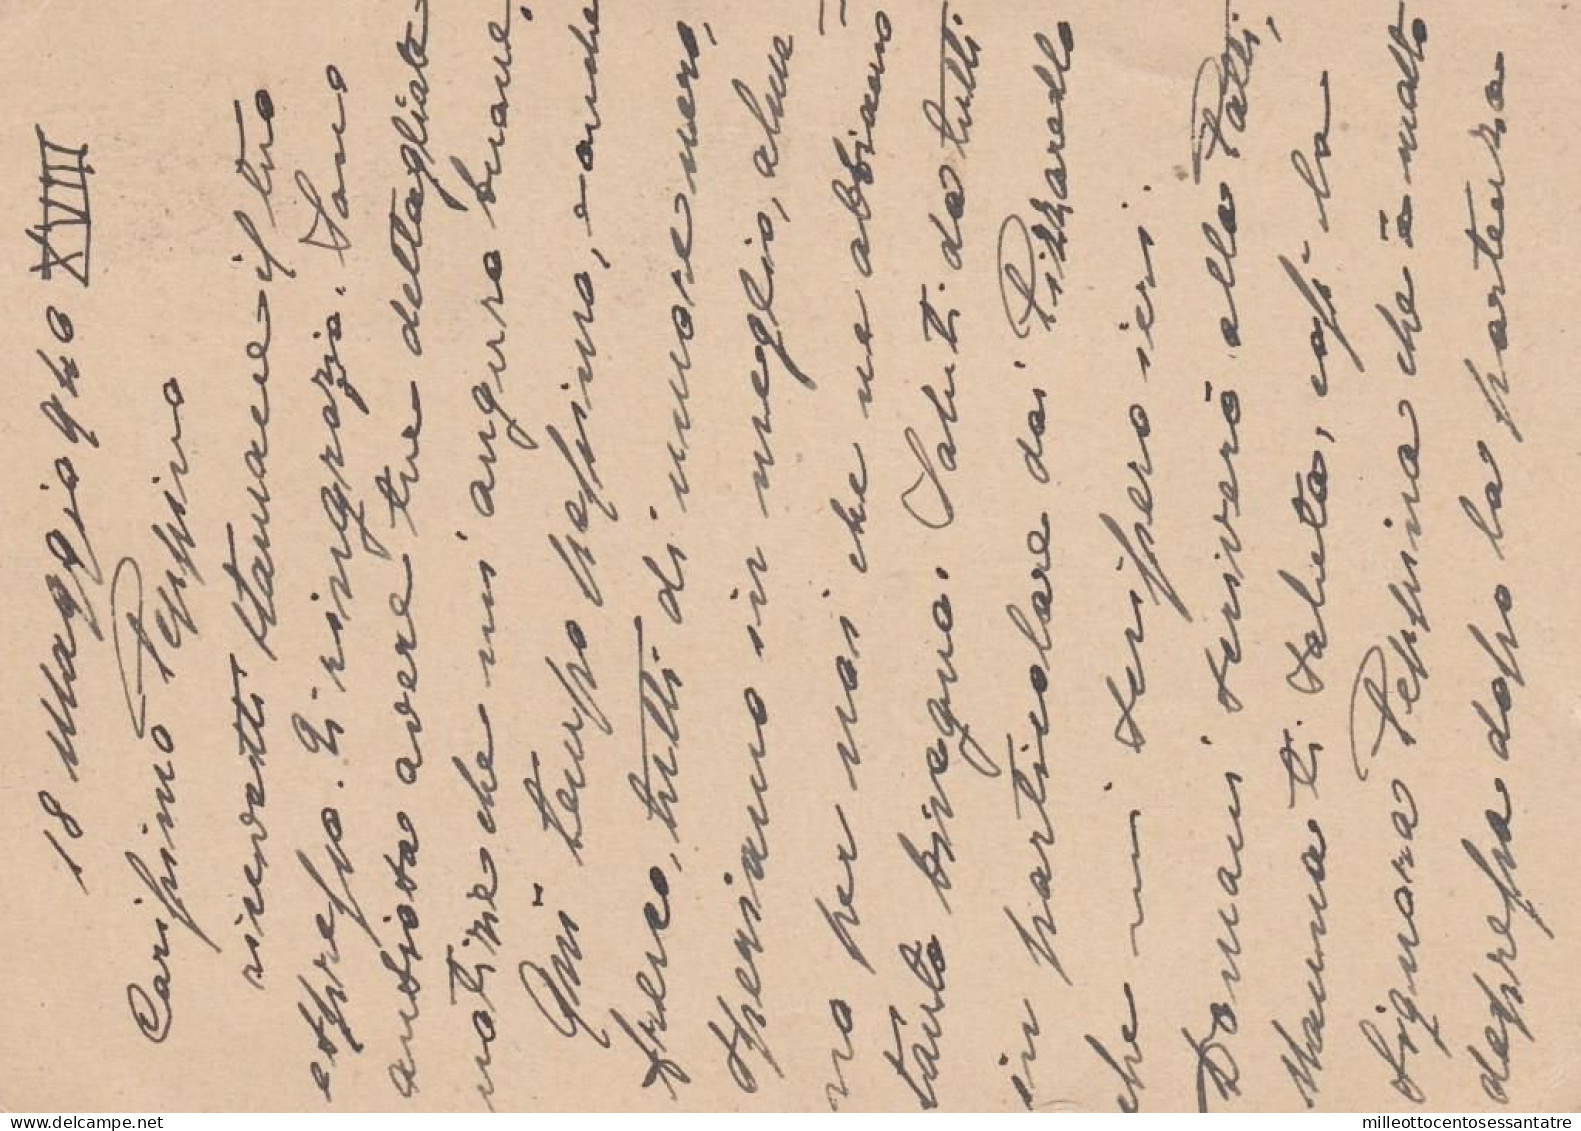 18 Maggio 940 XVIII
Carissimo Peppino
ricevetti stamane il tuo
espresso. Ti ringrazio. Sono
ansiosa avere tue dettagliate
notizie che mi auguro buone.
Qui tempo pessimo, e anche
fresco, tutti di umore nero,
speriamo in meglio, alme=
no per noi che ne abbiamo
tanto bisogno. Saluti da tutti
in particolare dai Pizzaredlo
che mi scrissero ieri.
Domani scriverò alla Palli,
Mamma ti saluta, così la
signora Peppina che è molto
depressa dopo la partenza
milleottocentosessantatre